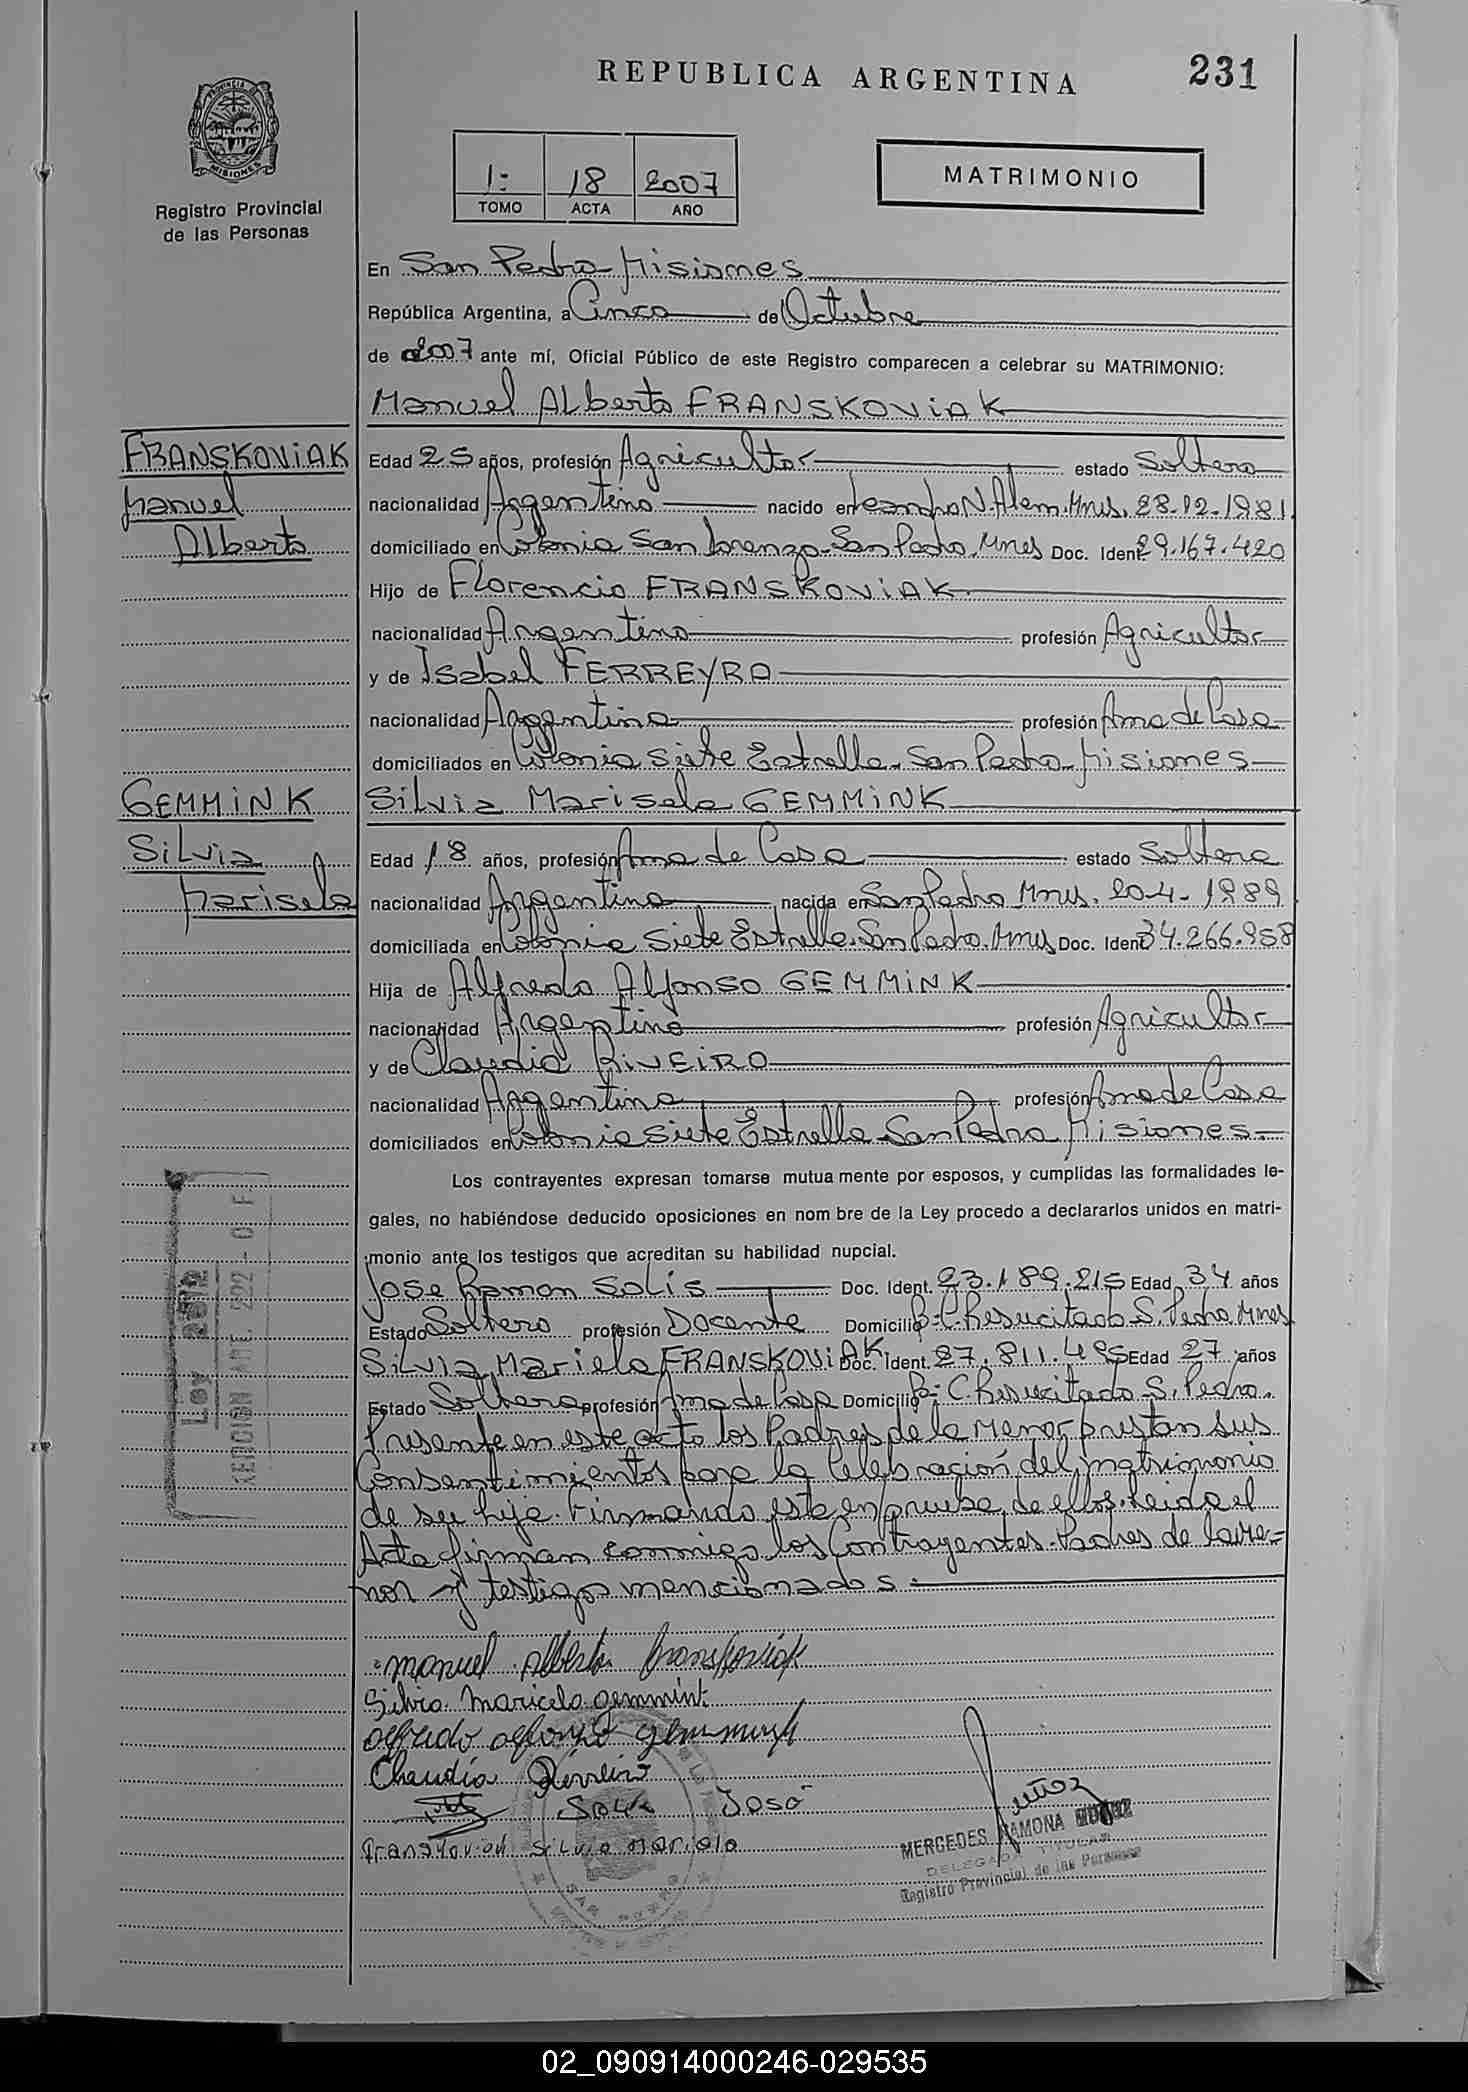 REPUBLICA ARGENTINA
231
PROVINCIA DE
MISIONES
Registro Provincial
de las Personas
1: 18 2007
TOMO ACTA AÑO
MATRIMONIO
En San Pedro Misiones
República Argentina, a Cinco de Octubre
de 2007 ante mí, Oficial Público de este Registro comparecen a celebrar su MATRIMONIO:
Manuel Alberto FRANSKOViAK
FRANSKOViAK
Manuel
Alberto
Edad 25 años, profesión Agricultor estado Soltero
nacionalidad Argentino nacido en Leandro N. Alem. Mnes. 28-12-1981
domiciliado en Colonia San Lorenzo-San Pedro. Mnes Doc. Ident. 29.167.420
Hijo de Florencio FRANSKOViAK
nacionalidad Argentino profesión Agricultor
y de Isabel FERREYRA
nacionalidad Argentina profesión Ama de Casa
domiciliados en Colonia Siete Estrella-San Pedro-Misiones
GEMMiNK
Silvia
Marisela
Silvia Marisela GEMMiNK
Edad 18 años, profesión Ama de Casa estado Soltera
nacionalidad Argentina nacida en San Pedro Mnes. 20-4-1989
domiciliada en Colonia Siete Estrella-San Pedro-Mnes Doc. Ident. 34.266.958
Hija de Alfredo Alfonso GEMMiNK
nacionalidad Argentino profesión Agricultor
y de Claudia RiVEiRO
nacionalidad Argentina profesión Ama de Casa
domiciliados en Colonia Siete Estrella-San Pedro Misiones-
Los contrayentes expresan tomarse mutua mente por esposos, y cumplidas las formalidades le-
gales, no habiéndose deducido oposiciones en nom bre de la Ley procedo a declararlos unidos en matri-
monio ante los testigos que acreditan su habilidad nupcial.
Jose Ramon SOLiS Doc. Ident. 23.189.215 Edad 34 años
Estado Soltero profesión Docente Domicilio Bº C. Resucitado S. Pedro Mnes
Silvia Mariela FRANSKOViAK Doc. Ident. 27.811.495 Edad 27 años
Estado Soltera profesión Ama de Casa Domicilio Bº C. Resucitado-S. Pedro.
Presente en este acto los Padres de la Menor prestan sus
Consentimientos para la Celebración del matrimonio
de su hija. Firmando este en prueba de ellos. Leida el
Acta firman conmigo los Contrayentes. Padres de la Me=
nor y testigos mencionados.
Ley
222 - O F.
manuel alberto franskoviak
Silvia Maricela gemmink
alfredo alfonso gemmink
Claudia Riveiro
Solis José
Franskoviak Silvia Mariela
Muñoz
MERCEDES RAMONA MUÑOZ
DELEGADA TITULAR
Registro Provincial de las Personas
02_090914000246-029535